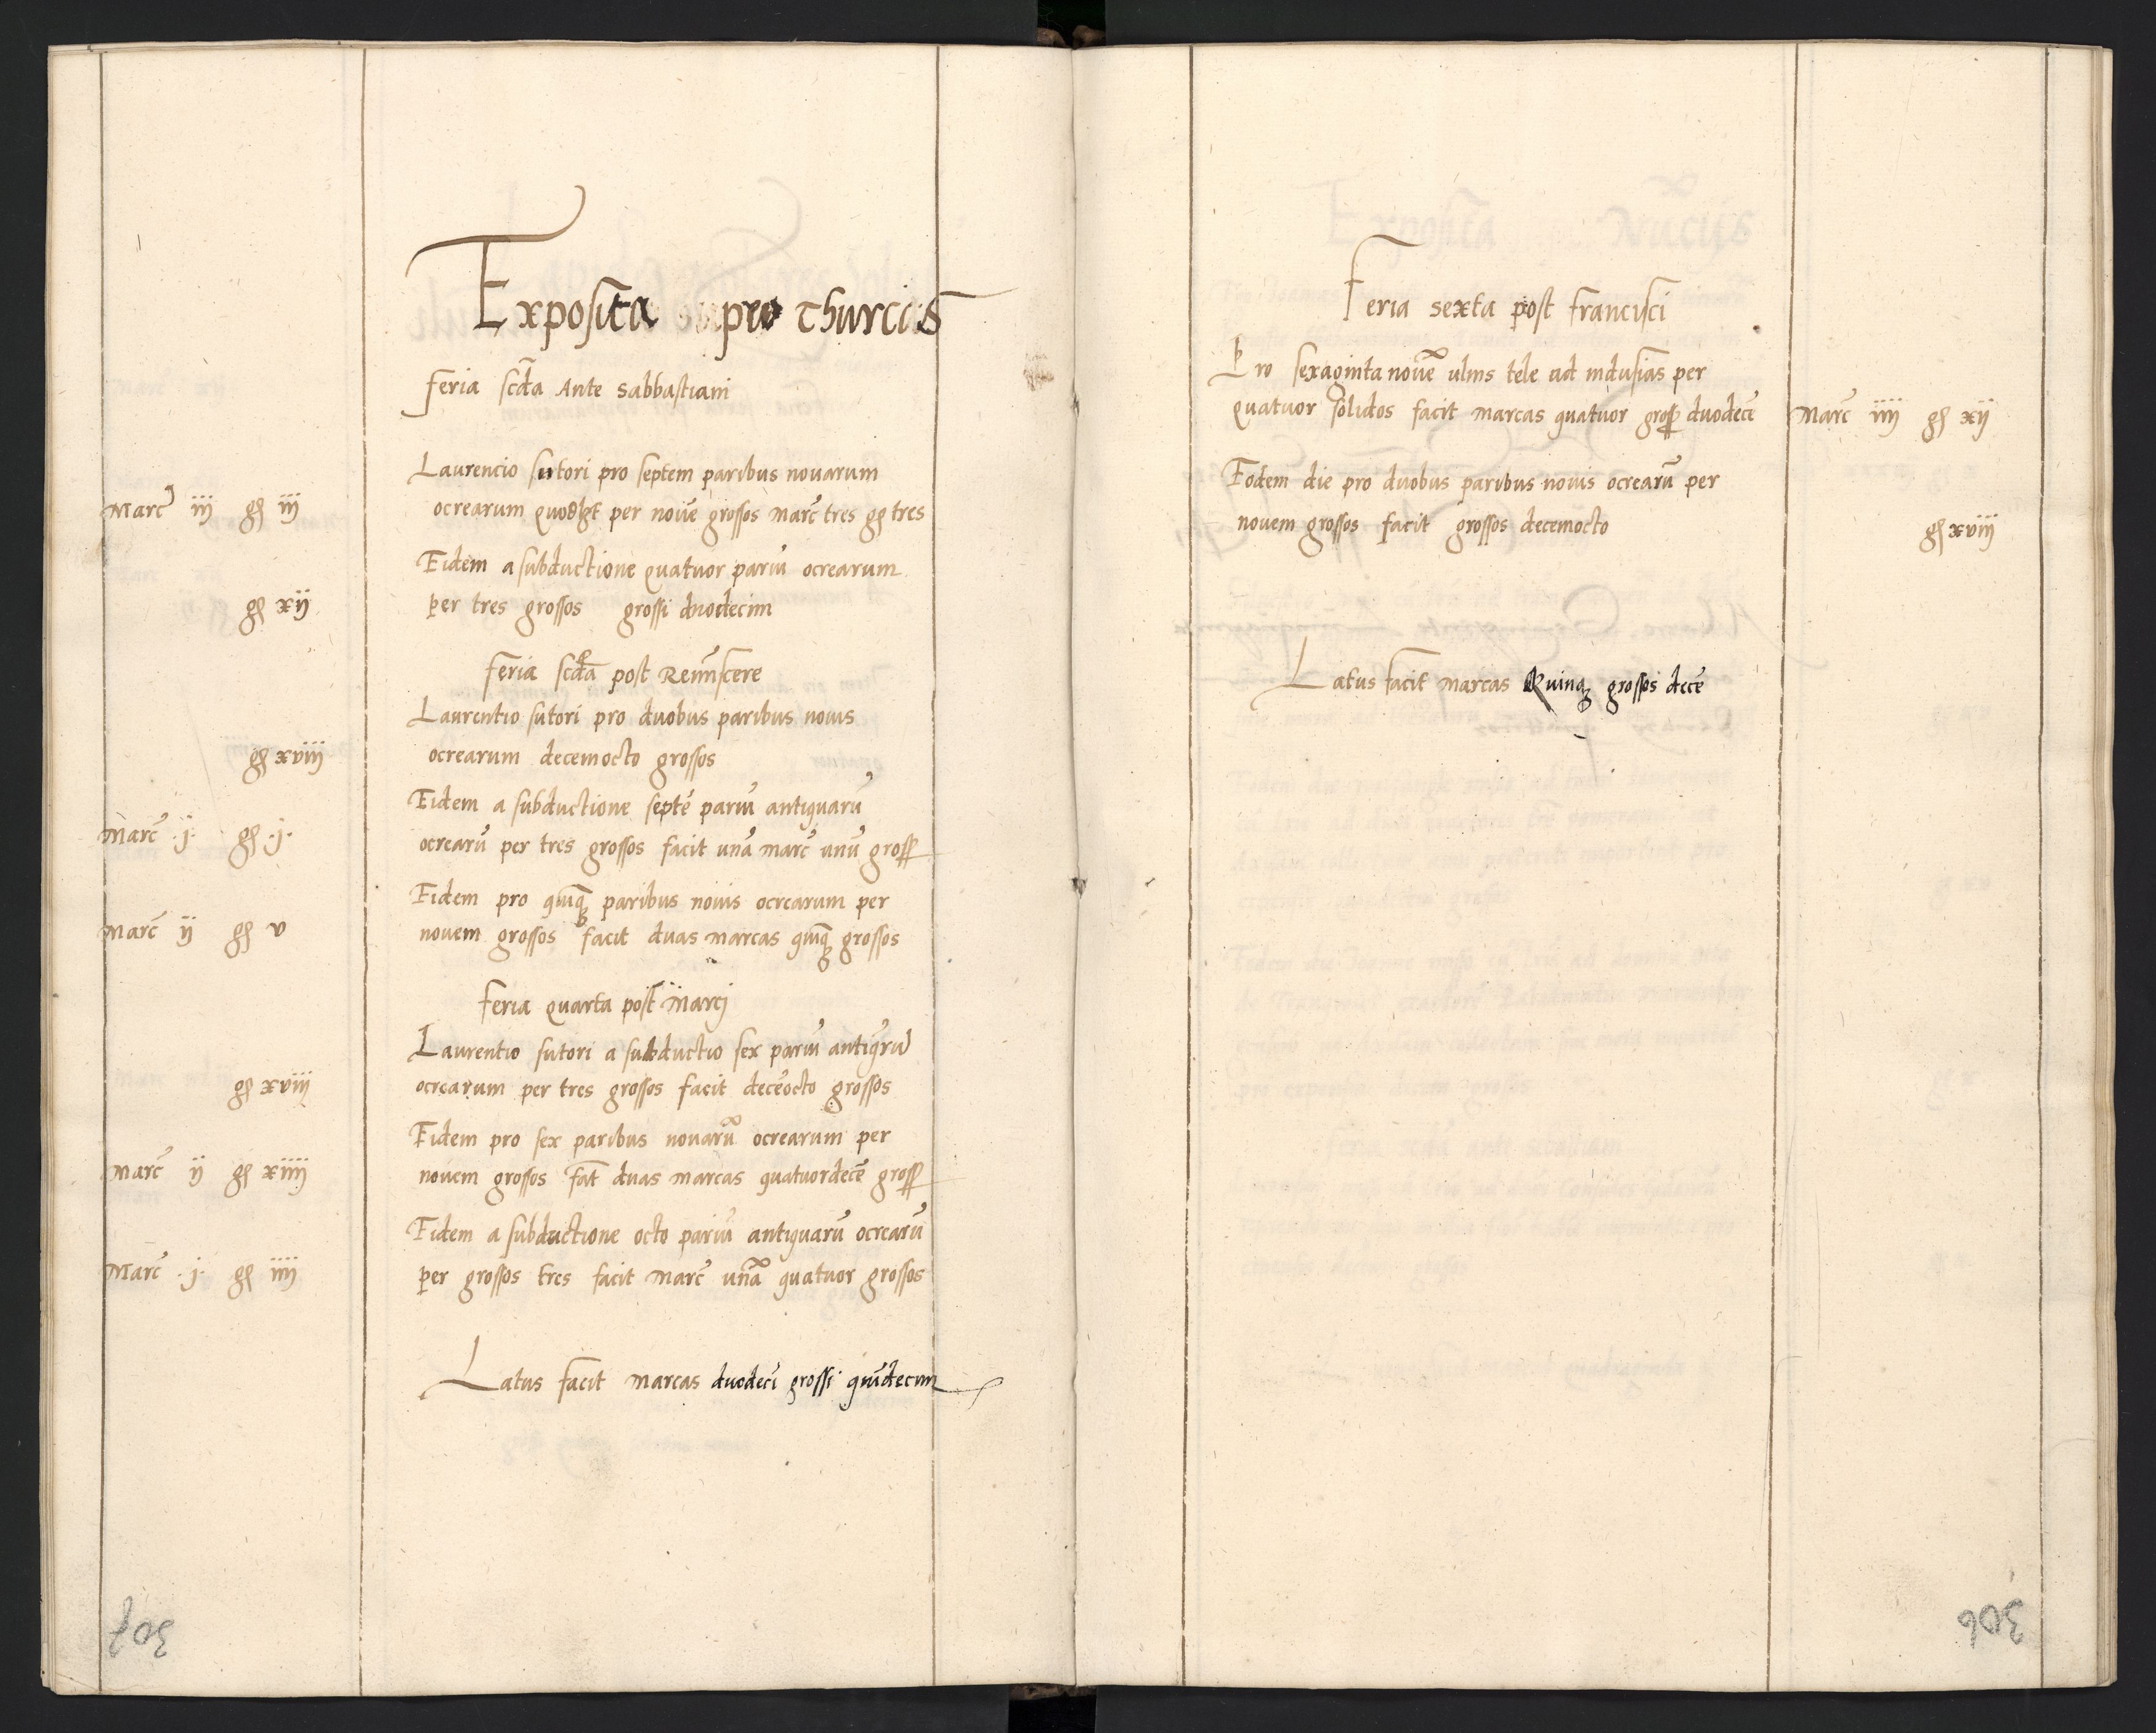 Exposita pro Thurcis
feria scda Ante Sabbastiani
Laurencio sutori pro septem paribus novarum
Marc iij gs iij ocrearum quodlꝫt per novē grossos marc tres gs tres
Eidem a subductione quatuor pariū ocrearum
gs xij per tres grossos grossi duodecim
feria scda post Reminscere
Laurentio sutori pro duobus paribus novis
gs xviij ocrearum decemocto grossos
Eidem a subductione septē pariū antiquarū
Marc .j. gs .j. ocrearū per tres grossos facit unā marc unū gross
Eidem pro quinqꝫ paribus novis ocrearum per
Marc ij gs v novem grossos facit duas marcas quinqꝫ grossos
feria quarta post Marcj
Laurentio sutori a subductio sex pariū antiqrū
gs xviij ocrearum per tres grossos facit decēocto grossos
Eidem pro sex paribus novarū ocrearum per
Marc ij gs xiiij novem grossos fat duas marcas quatuordecē gross
Eidem a subductione octo pariū antiquarū ocrearū
Marc .j. gs iiij per grossos tres facit marc unā quatuor grossos
Latus facit marcas duodeci grossi quīdecim
307
Feria sexta post francisci
Pro sexaginta novē ulnis tele ad indusias per
quatuor solidos facit marcas quatuor gross duodecē Marc iiij gs xij
Eodem die pro duobus paribus novis ocrearū per
novem grossos facit grossos decemocto gs xviij
Latus facit marcas Quinqꝫ grossos decē
306